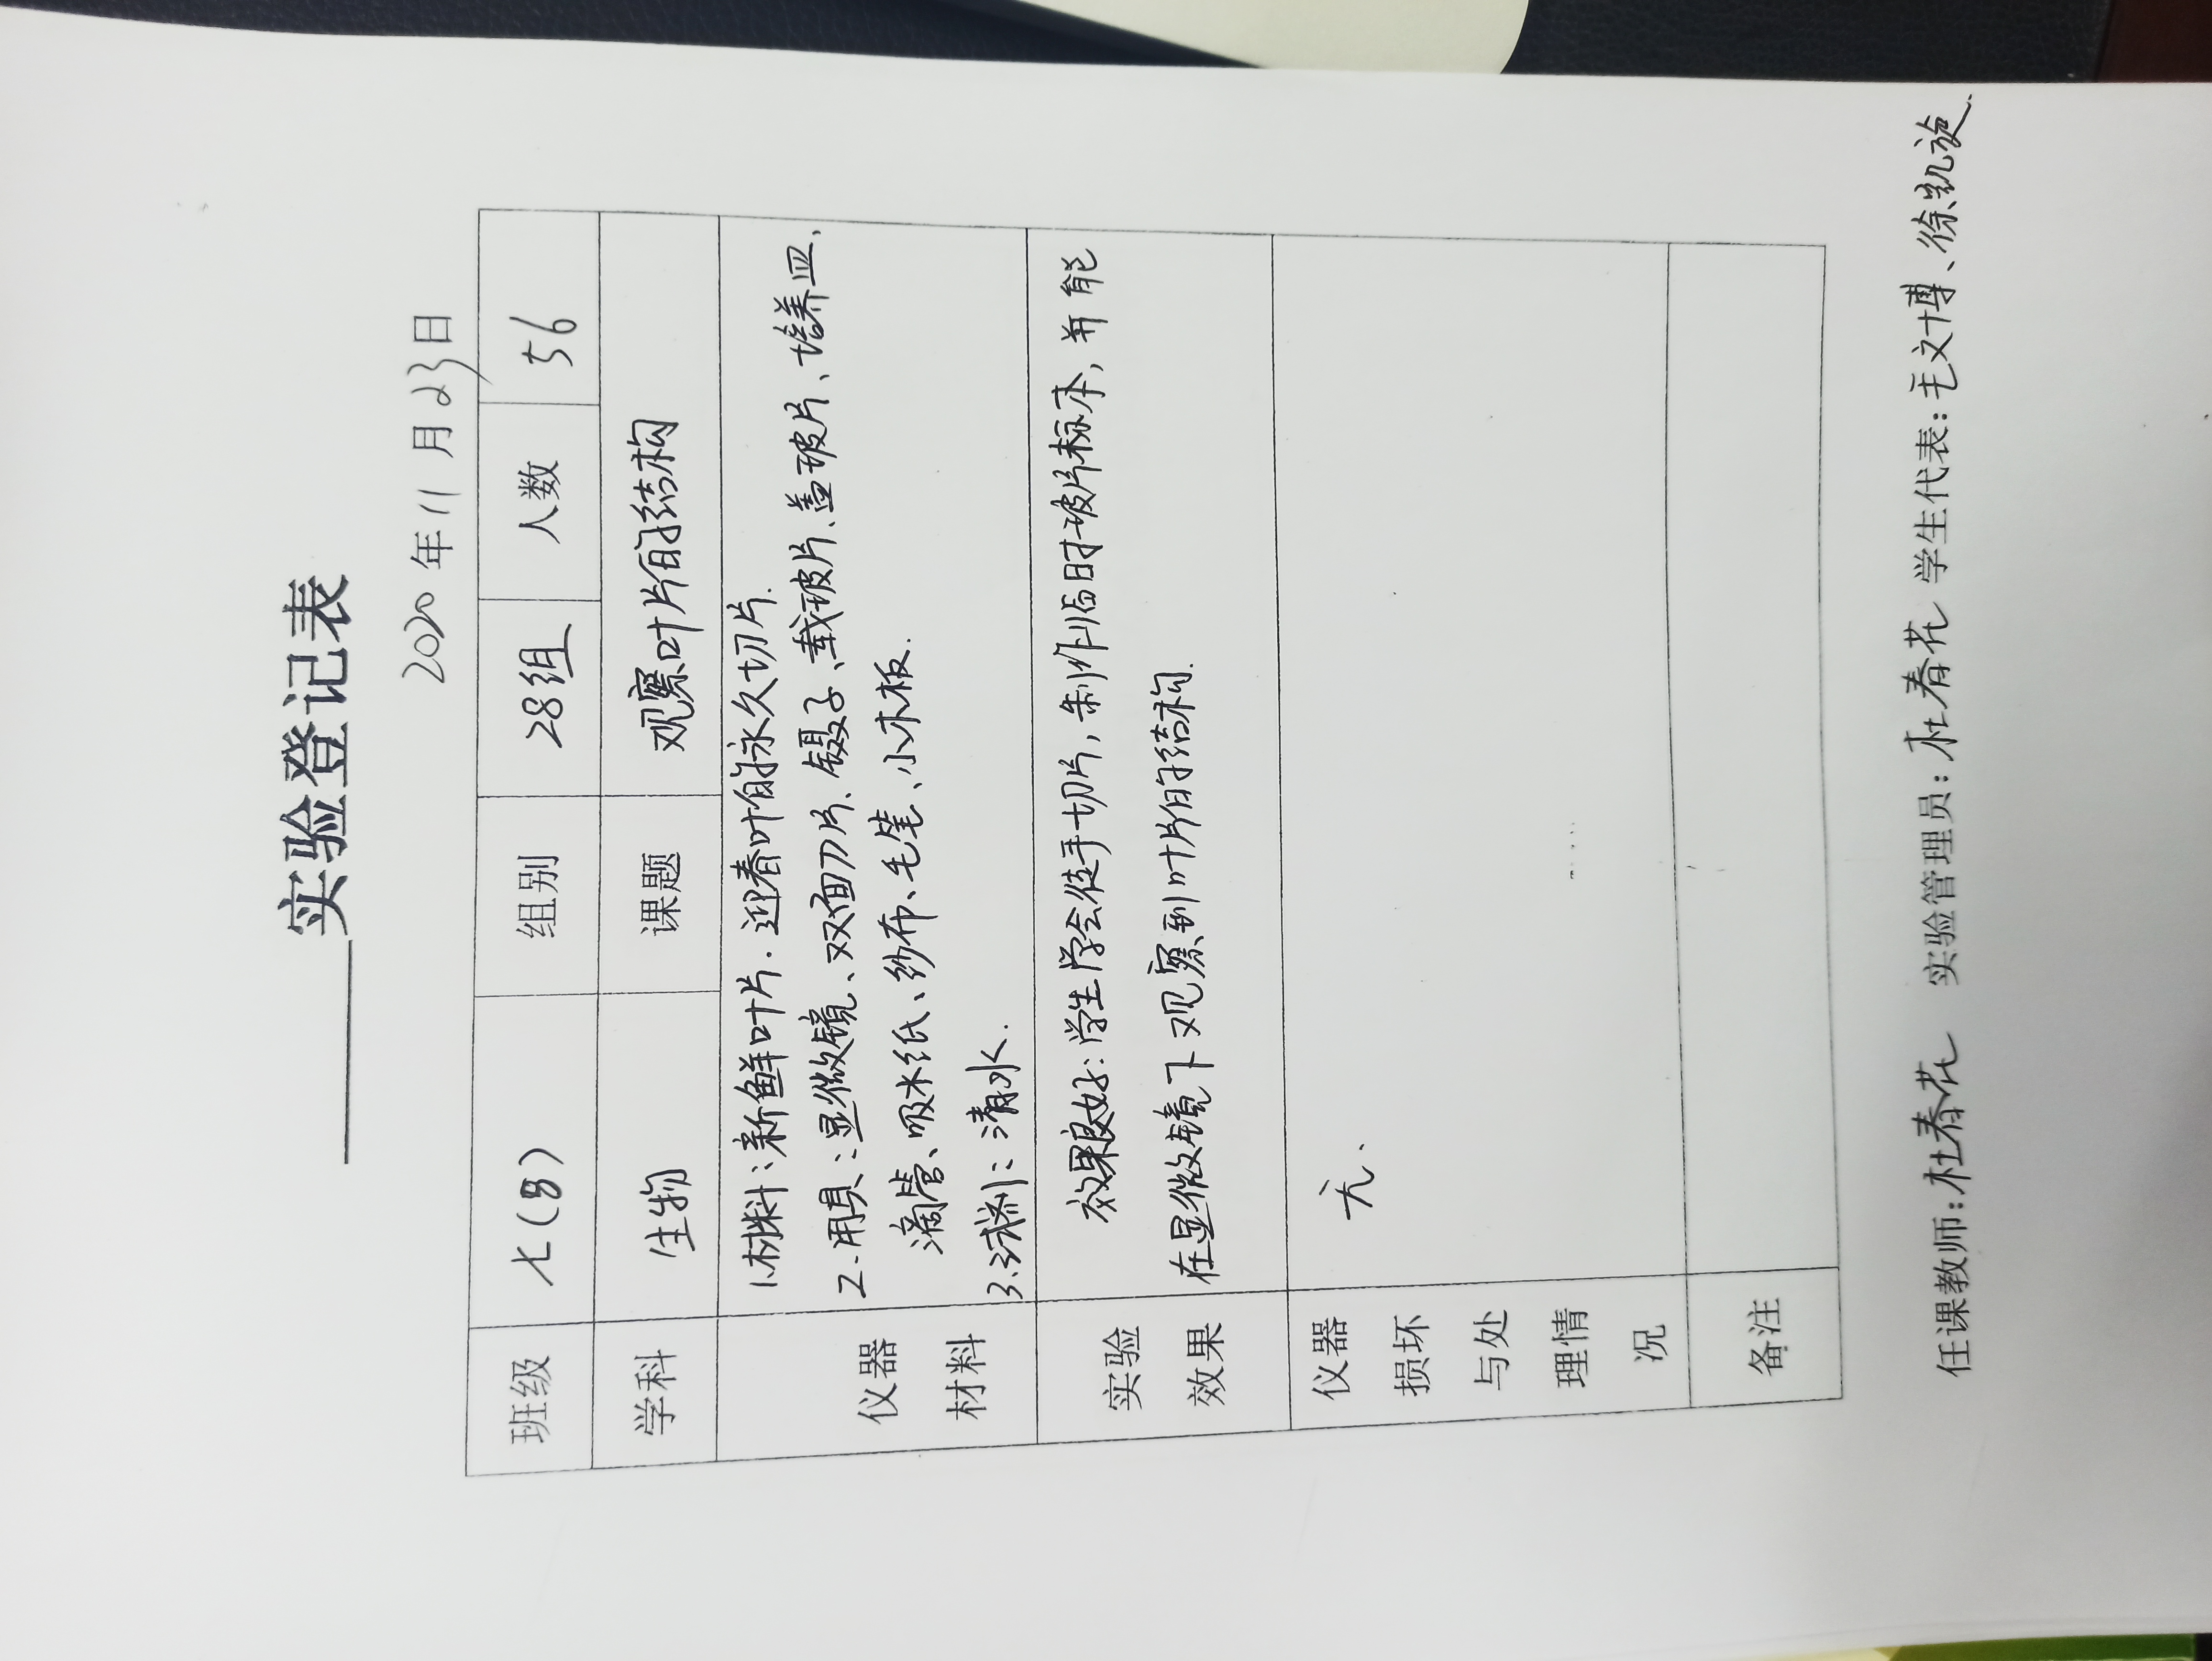 实验登记表
2020年11月23日
班级 七(8) 组别 28组 人数 56
学科 生物 课题 观察叶片的结构
仪器材料
1.材料:新鲜叶片.迎春叶的永久切片.
2.用具:显微镜、双面刀片、镊子、载玻片、盖玻片、培养皿、
滴管、吸水纸、纱布、毛笔、小木板.
3.试剂:清水.
实验效果
效果良好:学生学会徒手切片,制作临时玻片标本,并能
在显微镜下观察到叶片的结构.
仪器损坏与处理情况
无.
备注
任课教师:杜春花 实验管理员:杜春花 学生代表:毛文博、徐凯旋.